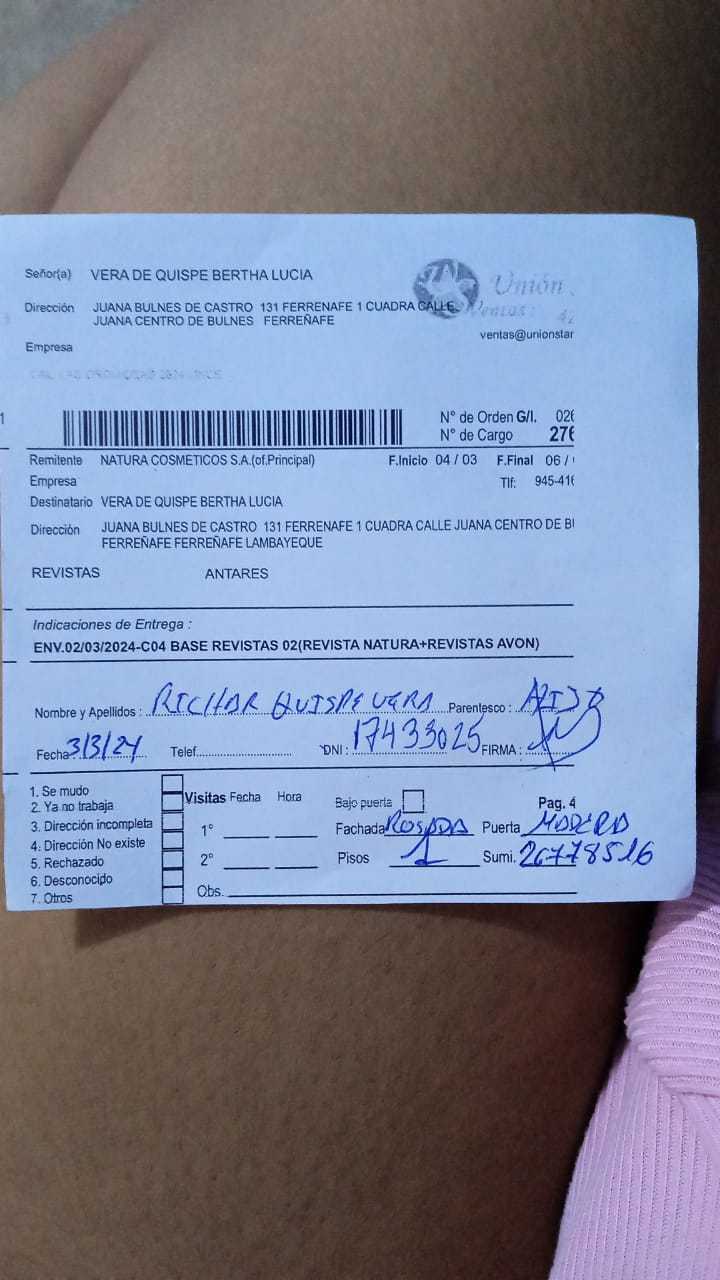 Señor(a) VERA DE QUISPE BERTHA LUCIA
Unión
Dirección JUANA BULNES DE CASTRO 131 FERRENAFE 1 CUADRA CALLE
JUANA CENTRO DE BULNES FERREÑAFE
Ventas:
ventas@unionstar
Empresa
N° de Orden G/I. 026
N° de Cargo 276
Remitente NATURA COSMETICOS S.A.(of.Principal) F.Inicio 04 / 03 F.Final 06 /
Empresa Tlf: 945-416
Destinatario VERA DE QUISPE BERTHA LUCIA
Dirección JUANA BULNES DE CASTRO 131 FERRENAFE 1 CUADRA CALLE JUANA CENTRO DE B
FERREÑAFE FERREÑAFE LAMBAYEQUE
REVISTAS ANTARES
Indicaciones de Entrega :
ENV.02/03/2024-C04 BASE REVISTAS 02(REVISTA NATURA+REVISTAS AVON)
Nombre y Apellidos : RICHAR QUISPE VERA Parentesco :
Fecha 3/3/24 Telef. DNI : 17433025 FIRMA :
1. Se mudo
2. Ya no trabaja Visitas Fecha Hora Bajo puerta Pag. 4
3. Dirección incompleta 1° Fachada ROSADA Puerta MADERA
4. Dirección No existe
5. Rechazado 2° Pisos 1 Sumi. 26778516
6. Desconocido
7. Otros Obs.